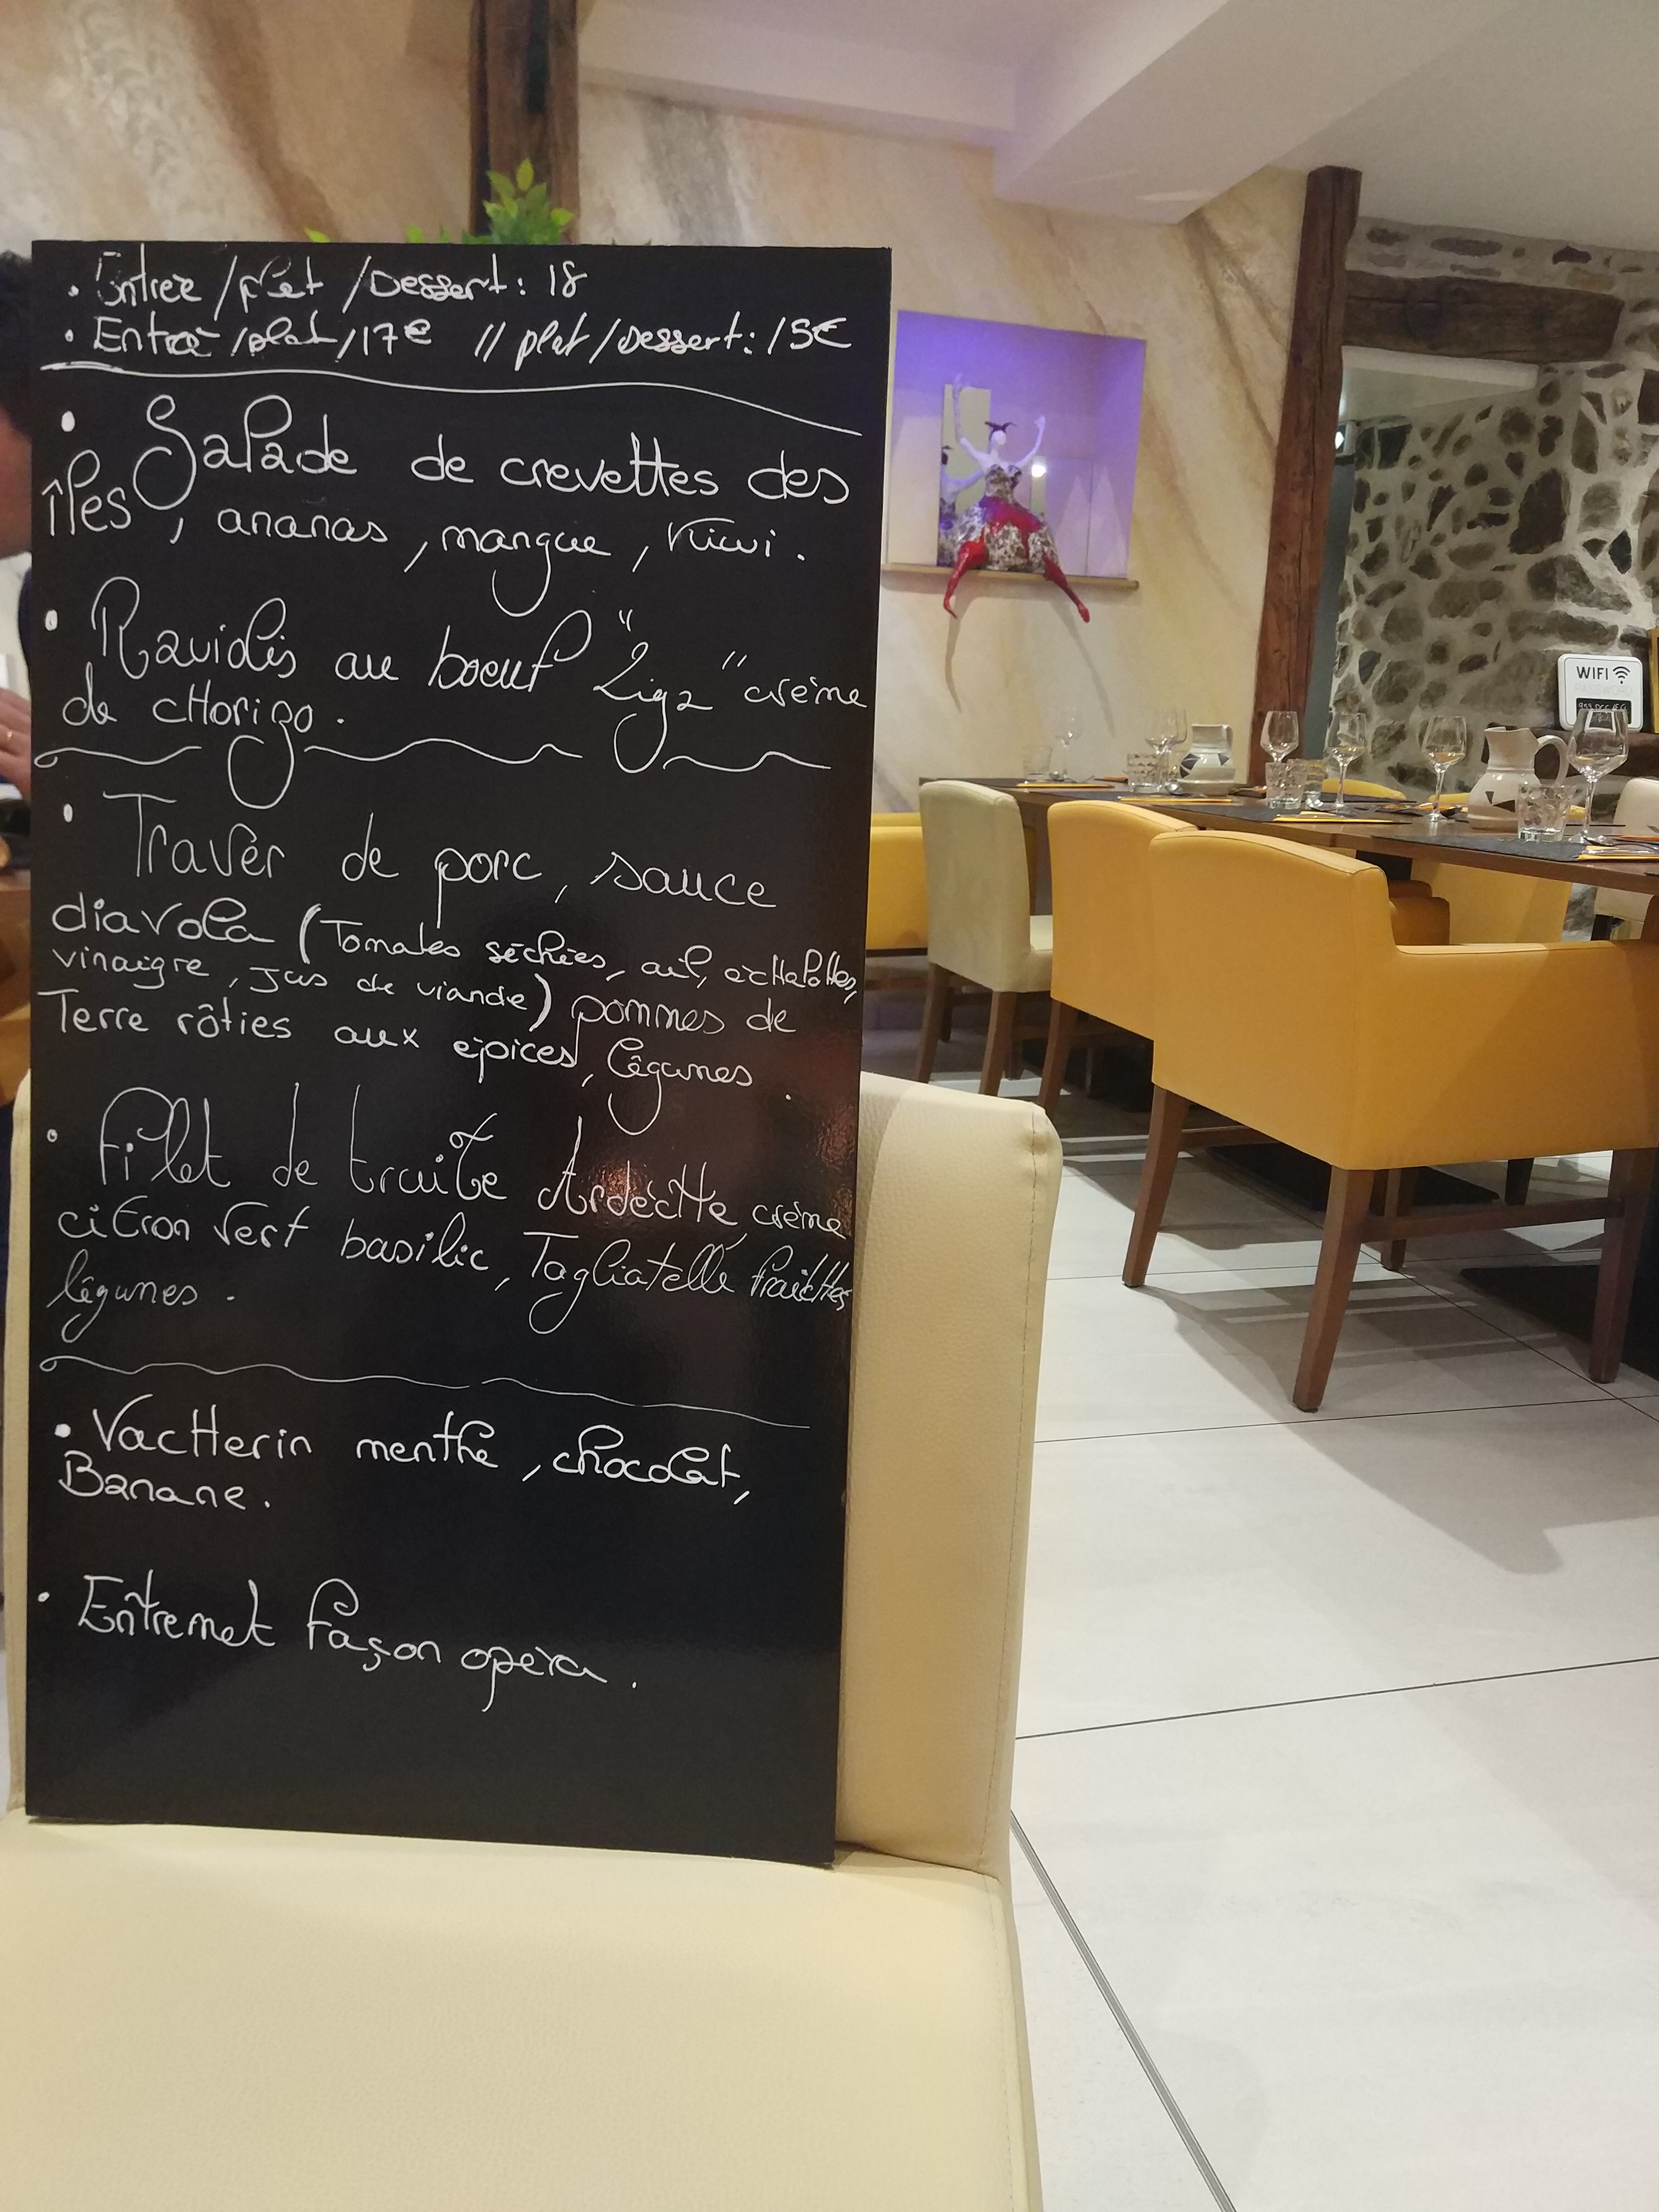 . Entrée /plat /Dessert: 18
. Entrée /plat/17€ // plat/Dessert: 15€
. Salade de crevettes des
îles, ananas, mangue, Kiwi.
. Raviolis au boeuf " " crème
de cHorizo.
. Traver de porc, sauce
diavola (Tomates séchées, ail, ecHalottes,
vinaigre, Jus de viande) pommes de
Terre rôties aux epices, légumes.
. Filet de truite ArdècHe, crème
citron vert basilic, Tagliatelle fraicHes
légumes.
. VacHerin menthe, chocolat,
Banane.
. Entremet façon opera.
WIFI